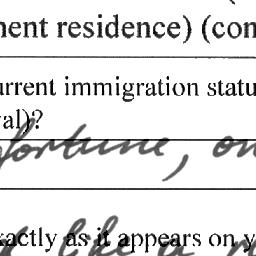 nent residence) (con
urrent immigration statu
val)?
fortune, on
xactly as it appears on y
like a